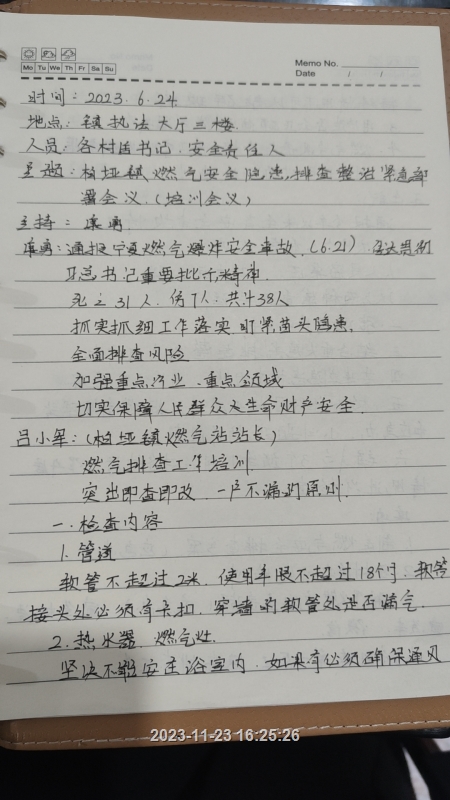 Memo No.
Mo Tu We Th Fr Sa Su
Date / /
时间：2023.6.24
地点：镇执法大厅三楼
人员：各村居书记.安全责任人
主题：柏垭镇燃气安全隐患排查整治紧急部
署会议.(培训会议)
主持：康勇
康勇：通报宁夏燃气爆炸安全事故.(6.21)传达贯彻
习总书记重要批示精神.
死亡31人.伤7人.共计38人
抓实抓细工作落实盯紧苗头隐患,
全面排查风险
加强重点行业.重点领域
切实保障人民群众生命财产安全.
吕小军：(柏垭镇燃气站站长)
燃气排查工作培训
突出即查即改.一户不漏的原则.
一.检查内容
1.管道
软管不超过2米.使用年限不超过18个月.软管
接头处必须有卡扣.穿墙的软管处是否漏气.
2.热水器.燃气灶.
坚决不能安在浴室内.如果有必须确保通风
2023-11-23 16:25:26